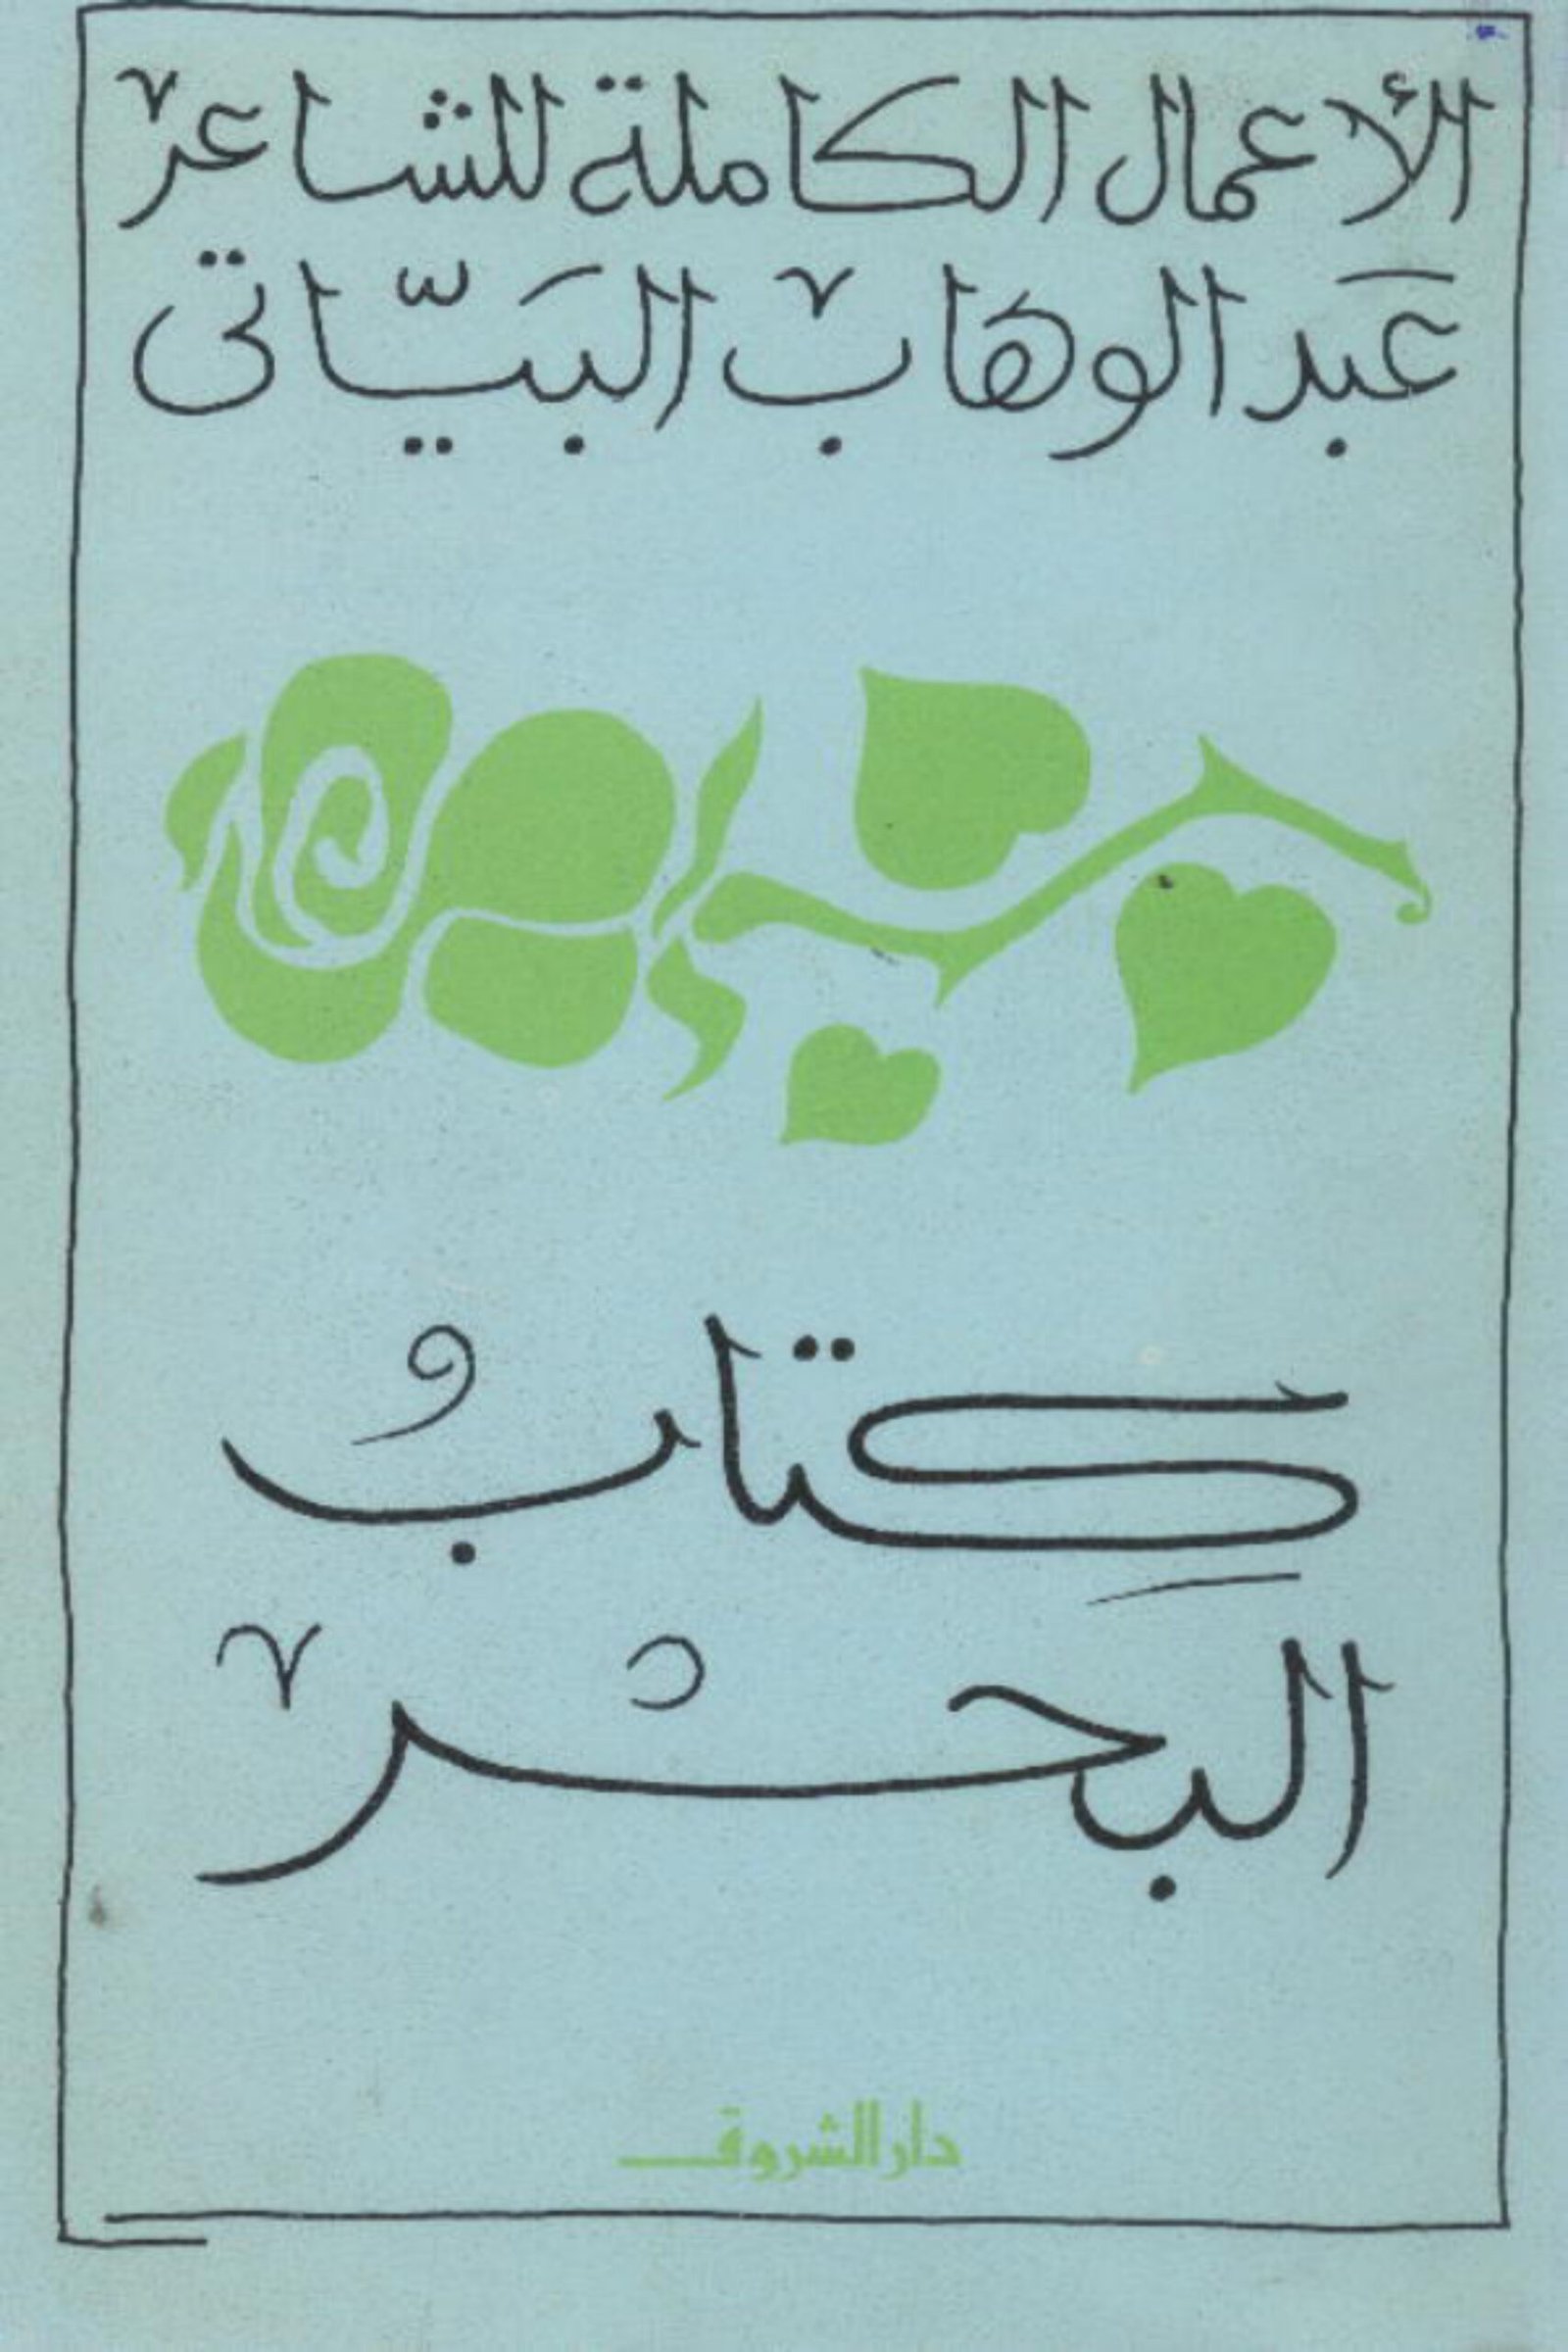 الأعمال الكاملة للشاعر
عَبد الوهاب البَيّاتى
كِتابُ
البحْر
دار الشروق